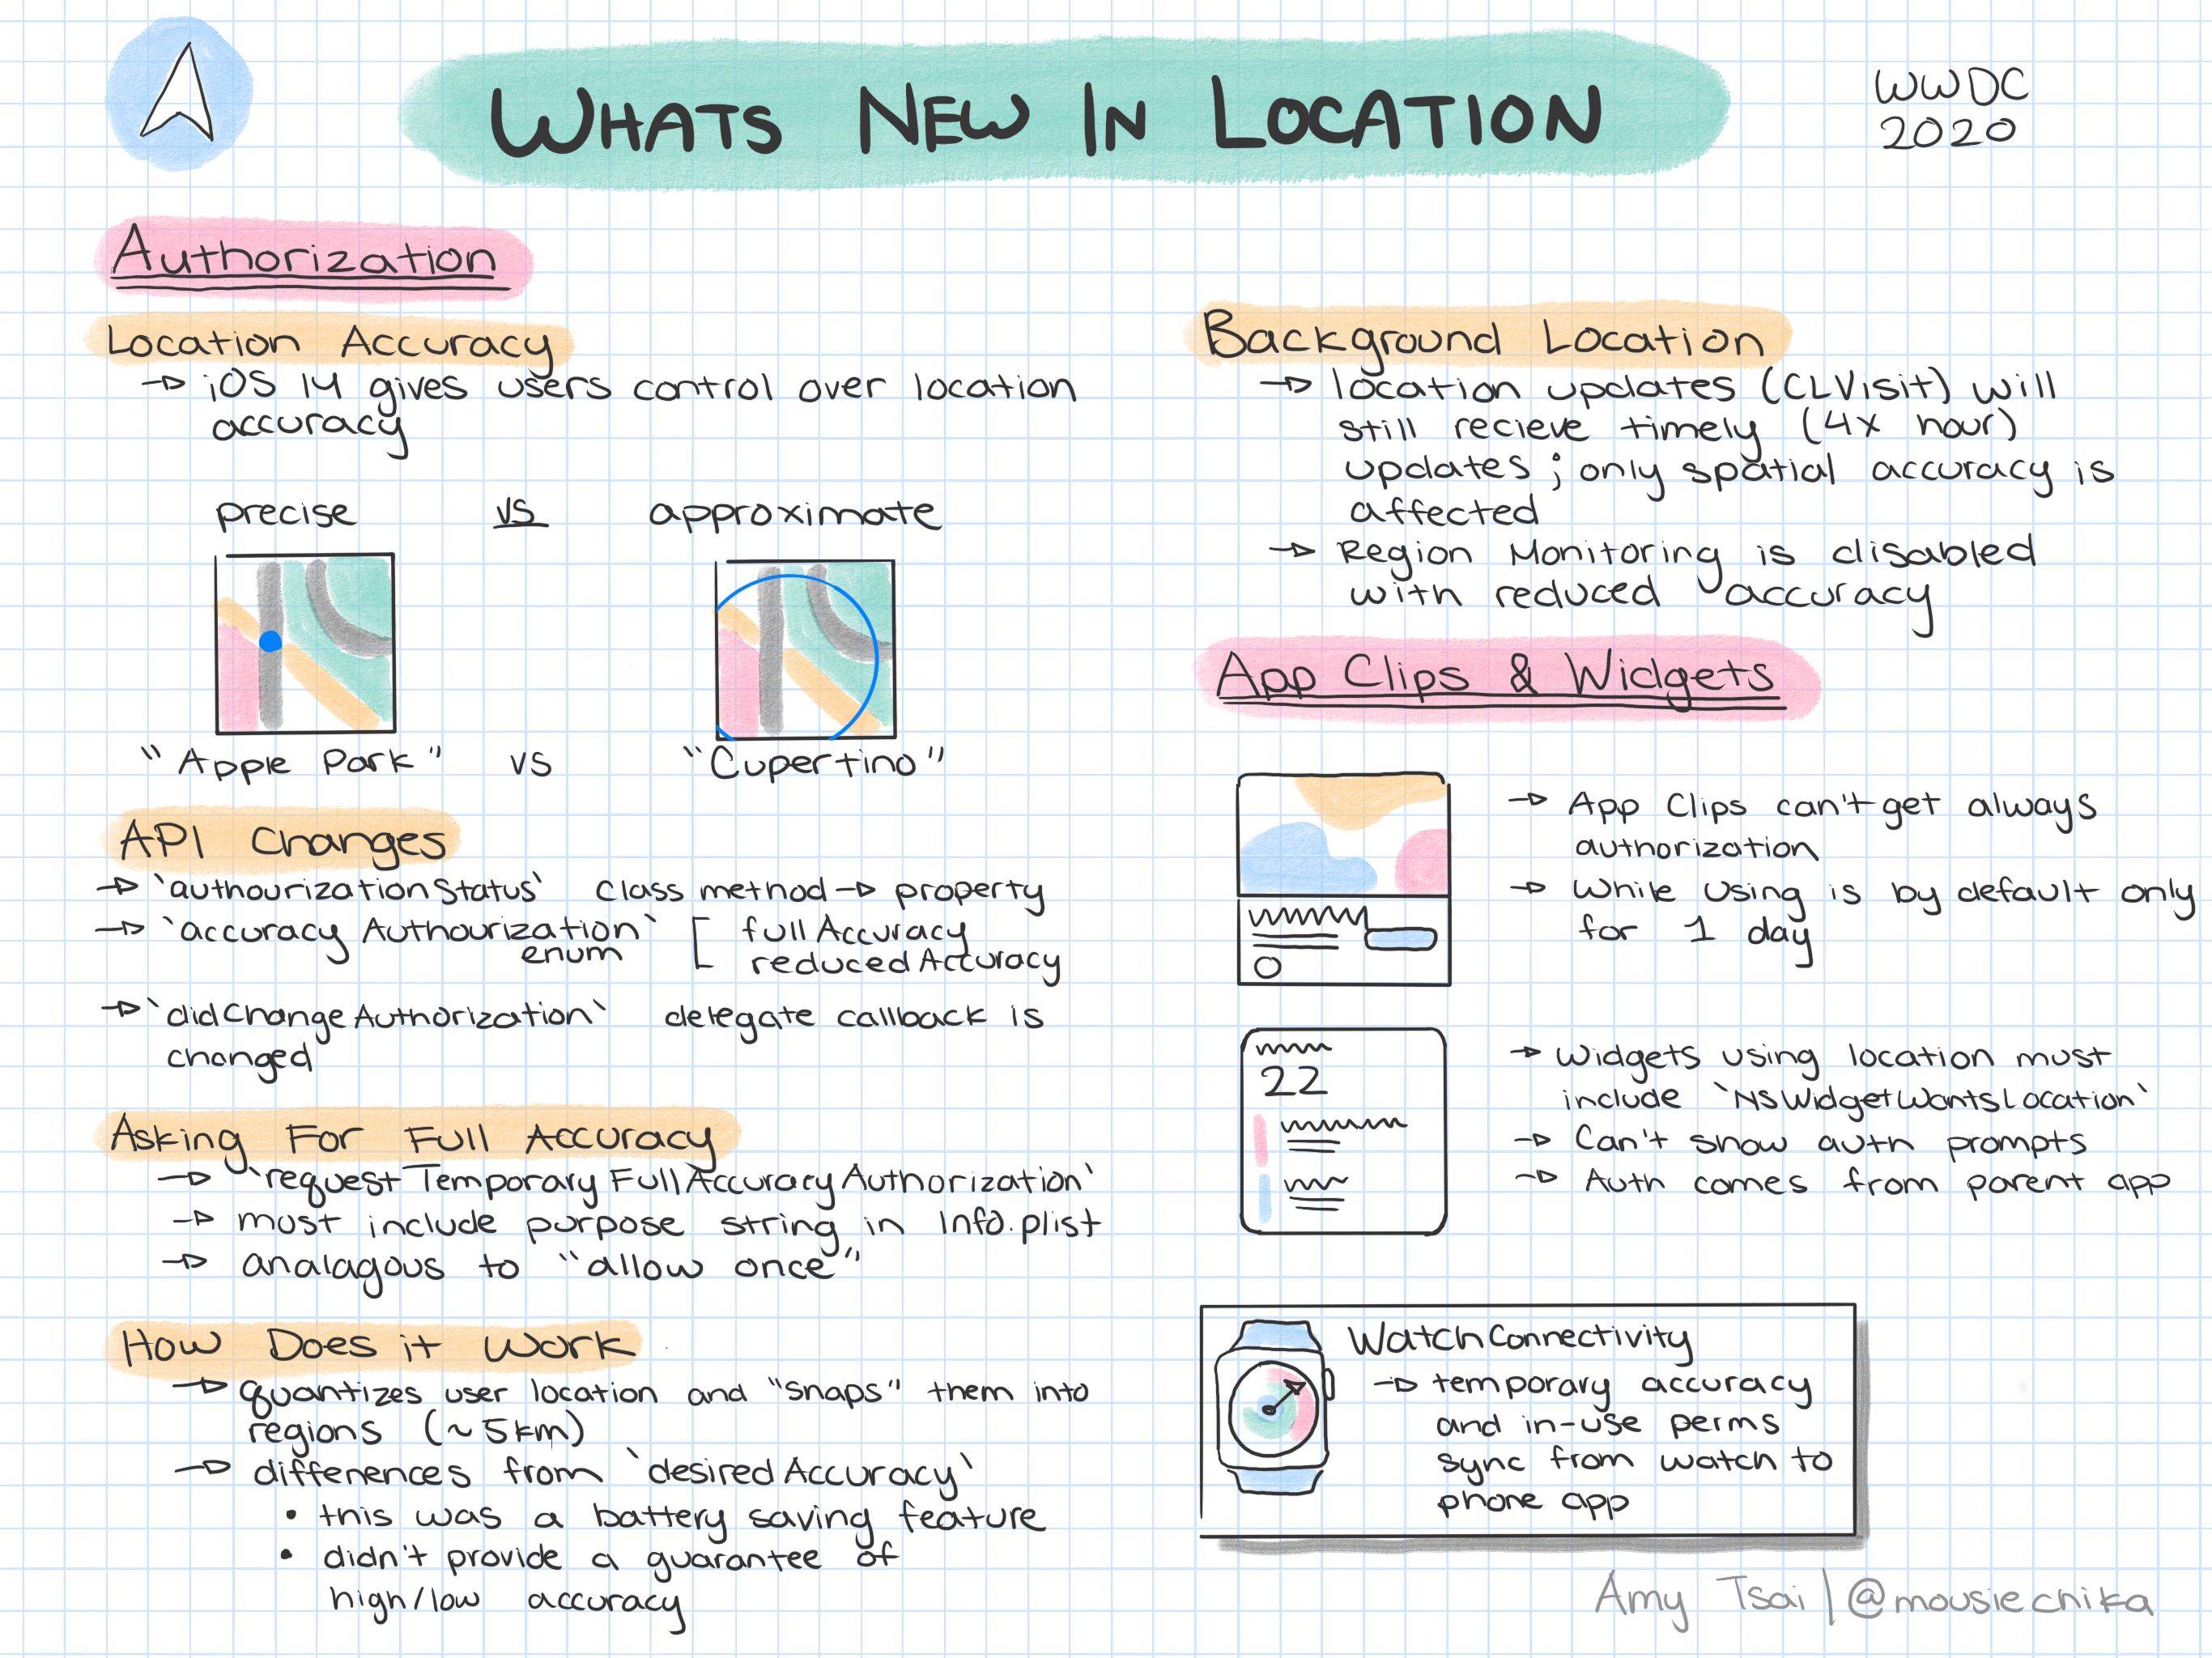 WHATS NEW IN LOCATION
WWDC
2020
Authorization
Location Accuracy
→ iOS 14 gives users control over location
accuracy
precise vs approximate
"Apple Park" vs "Cupertino"
API Changes
→ `authourizationStatus` class method → property
→ `accuracyAuthourization` [ fullAccuracy
enum reducedAccuracy
→ `didChangeAuthorization` delegate callback is
changed
Asking For Full Accuracy
→ `requestTemporaryFullAccuracyAuthorization`
→ must include purpose string in Info.plist
→ analagous to "allow once"
How Does it Work
→ quantizes user location and "snaps" them into
regions (~5km)
→ diffenences from `desiredAccuracy`
• this was a battery saving feature
• didn't provide a guarantee of
high/low accuracy
Background Location
→ location updates (CLVisit) will
still recieve timely (4x hour)
updates; only spatial accuracy is
affected
→ Region Monitoring is disabled
with reduced accuracy
App Clips & Widgets
→ App Clips can't get always
authorization
→ While Using is by default only
for 1 day
22
→ Widgets using location must
include `NSWidgetWantsLocation`
→ Can't show auth prompts
→ Auth comes from parent app
WatchConnectivity
→ temporary accuracy
and in-use perms
sync from watch to
phone app
Amy Tsai | @mousiechika